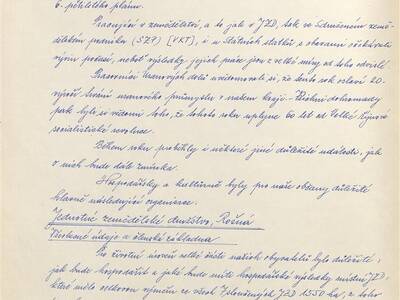 6. pětiletého plánu.
Pracující v zemědělství, a to jak v JZD, tak ve Sdruženém země-
dělském podniku (SZP) [VKT], i u Státních statků s obavami očekávali
vývoj počasí, neboť výsledky jejich práce jsou z velké míry od toho odvislé.
Pracovníci Uranových dolů uvědomovali si, že tento rok oslaví 20.
výročí trvání uranového průmyslu v našem kraji. Všichni dohromady
pak byli si vědomi toho, že tohoto roku uplyne 60 let od Velké říjnové
socialistické revoluce.
Během roku proběhly i některé jiné důležité události, jak
o nich bude dále zmínka.
Hospodářsky a kulturně byly pro naše občany důležité
hlavně následující organizace.
Jednotné zemědělské družstvo, Rožná
Všeobecné údaje a členská základna
Pro životní úroveň velké části našich obyvatelů bylo důležité,
jak bude hospodařit a jaké bude mít hospodářské výsledky místní JZD,
které mělo celkovou výměru ze všech členských JZD 1550 ha, z toho